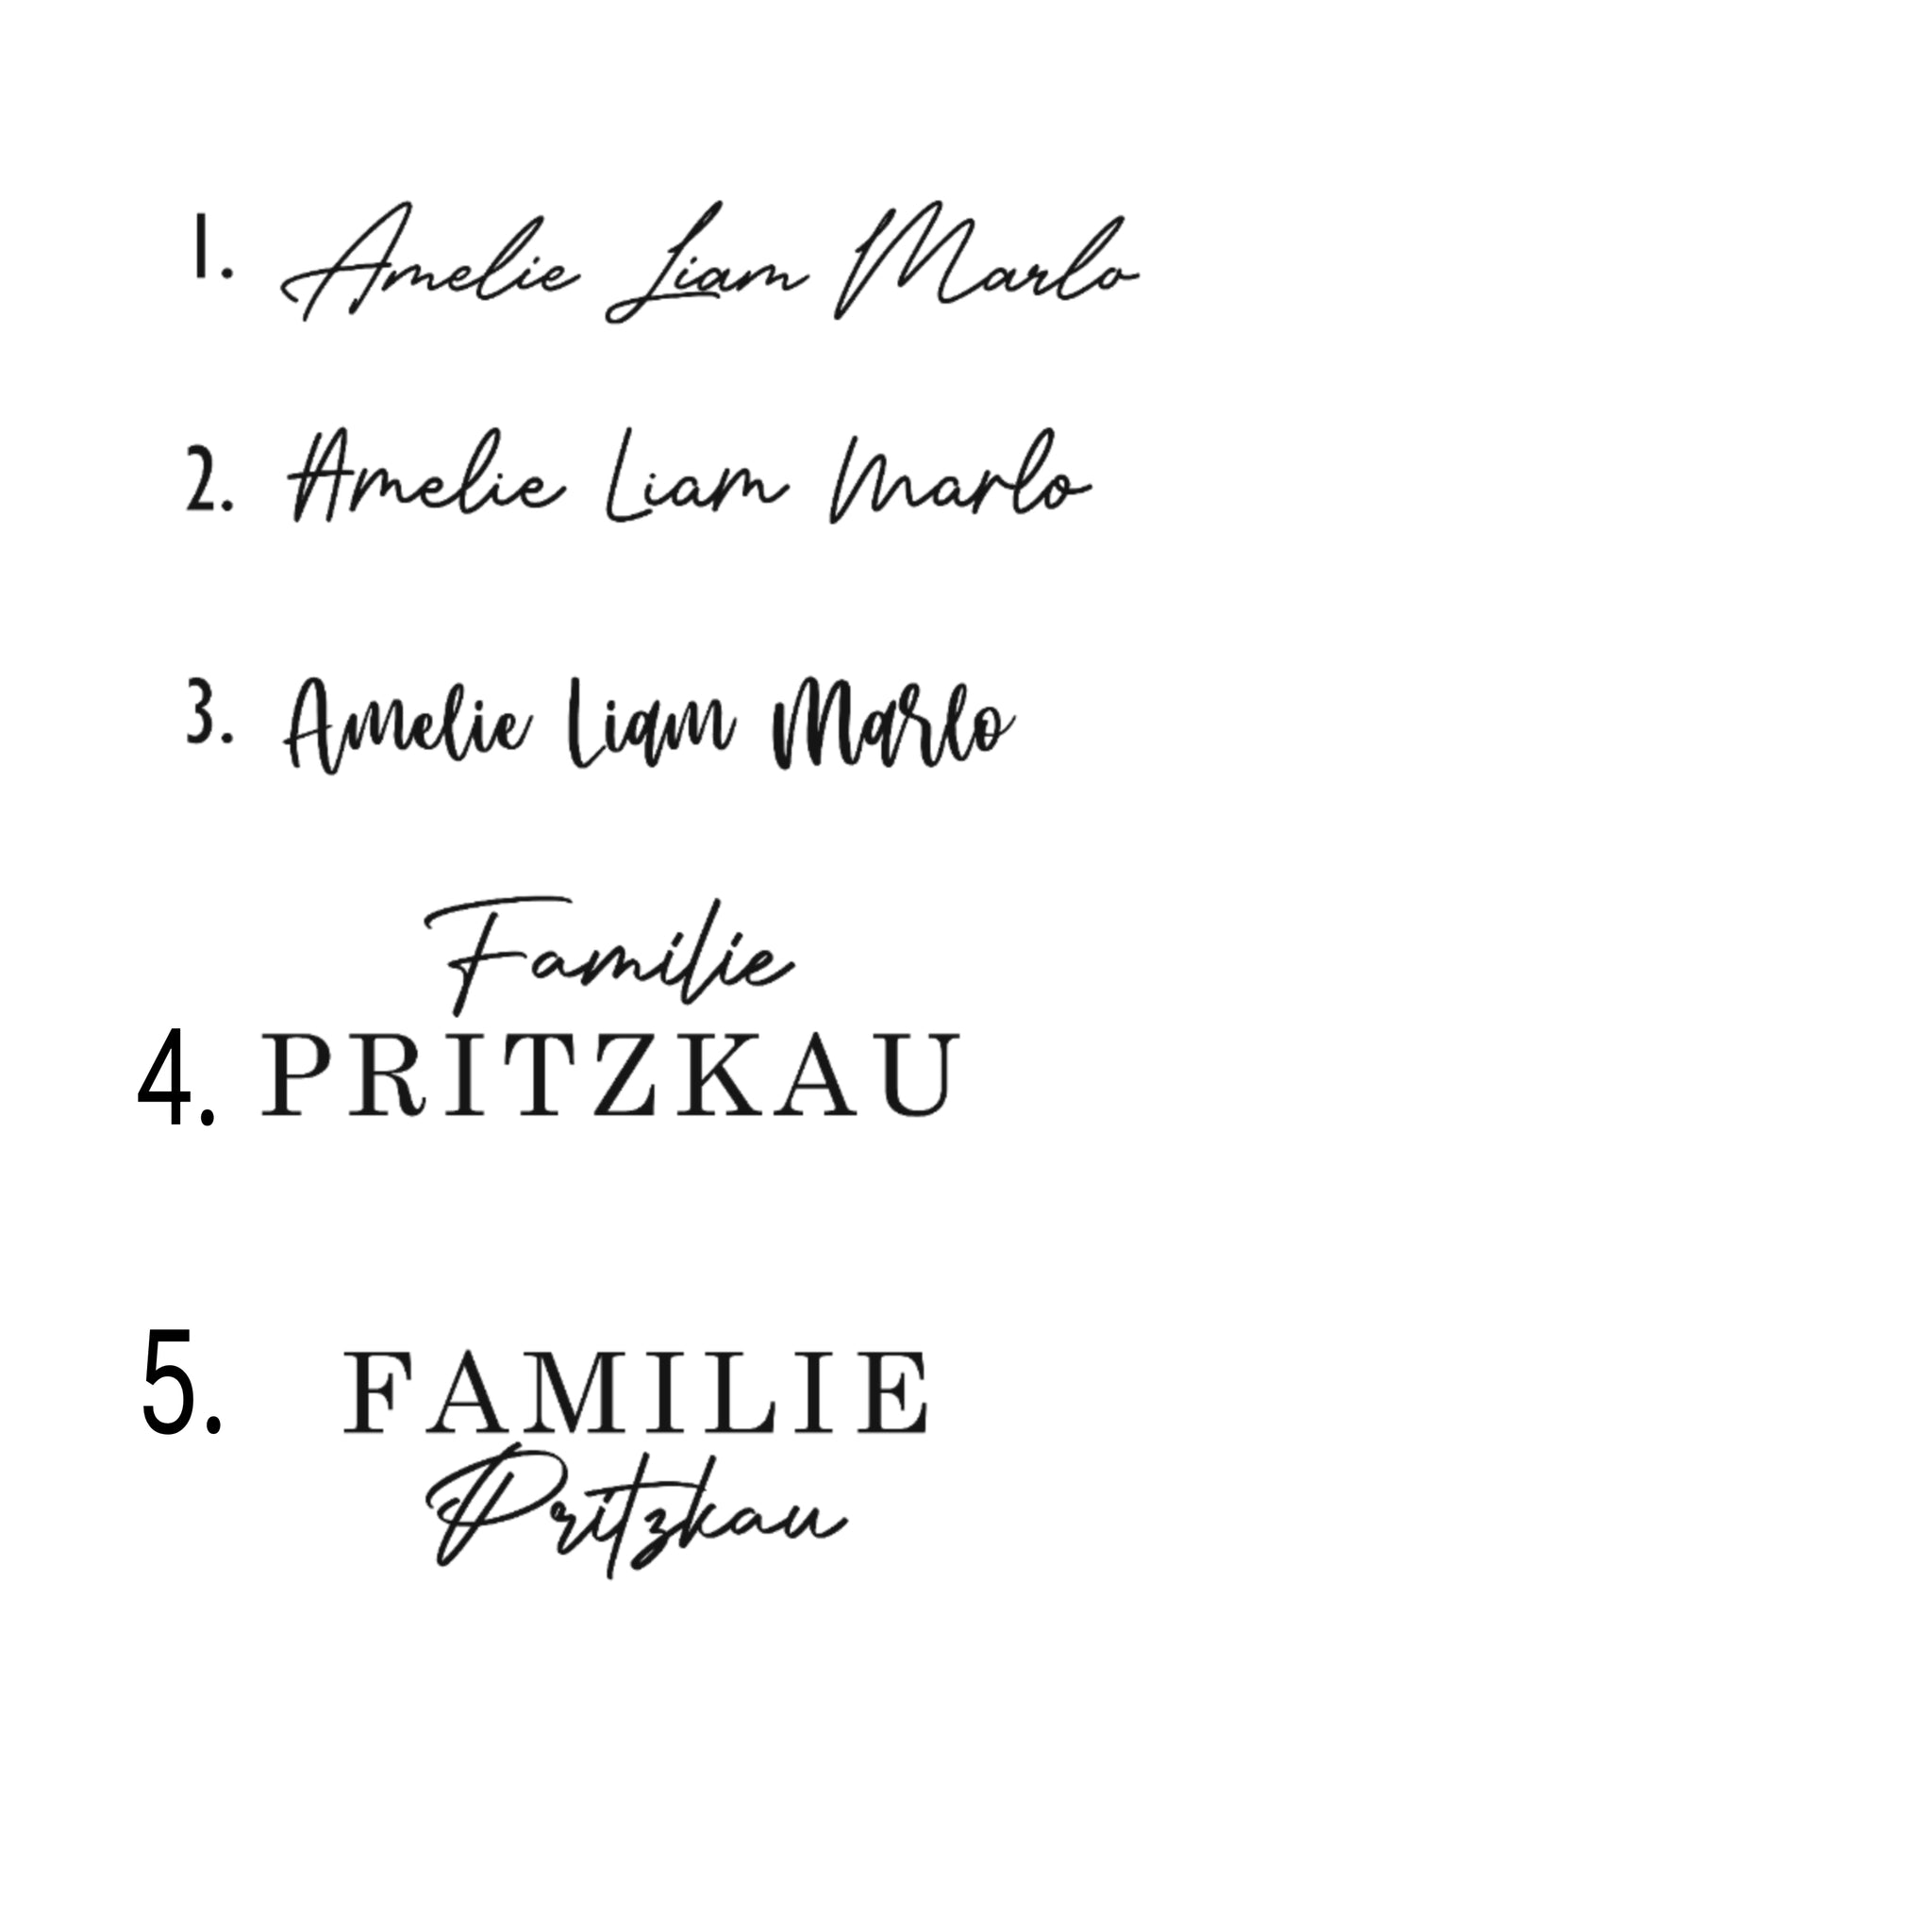 1. Amelie Liam Marlo
2. Amelie Liam Marlo
3. Amelie Liam Marlo
Familie
4. PRITZKAU
5. FAMILIE
Pritzkau